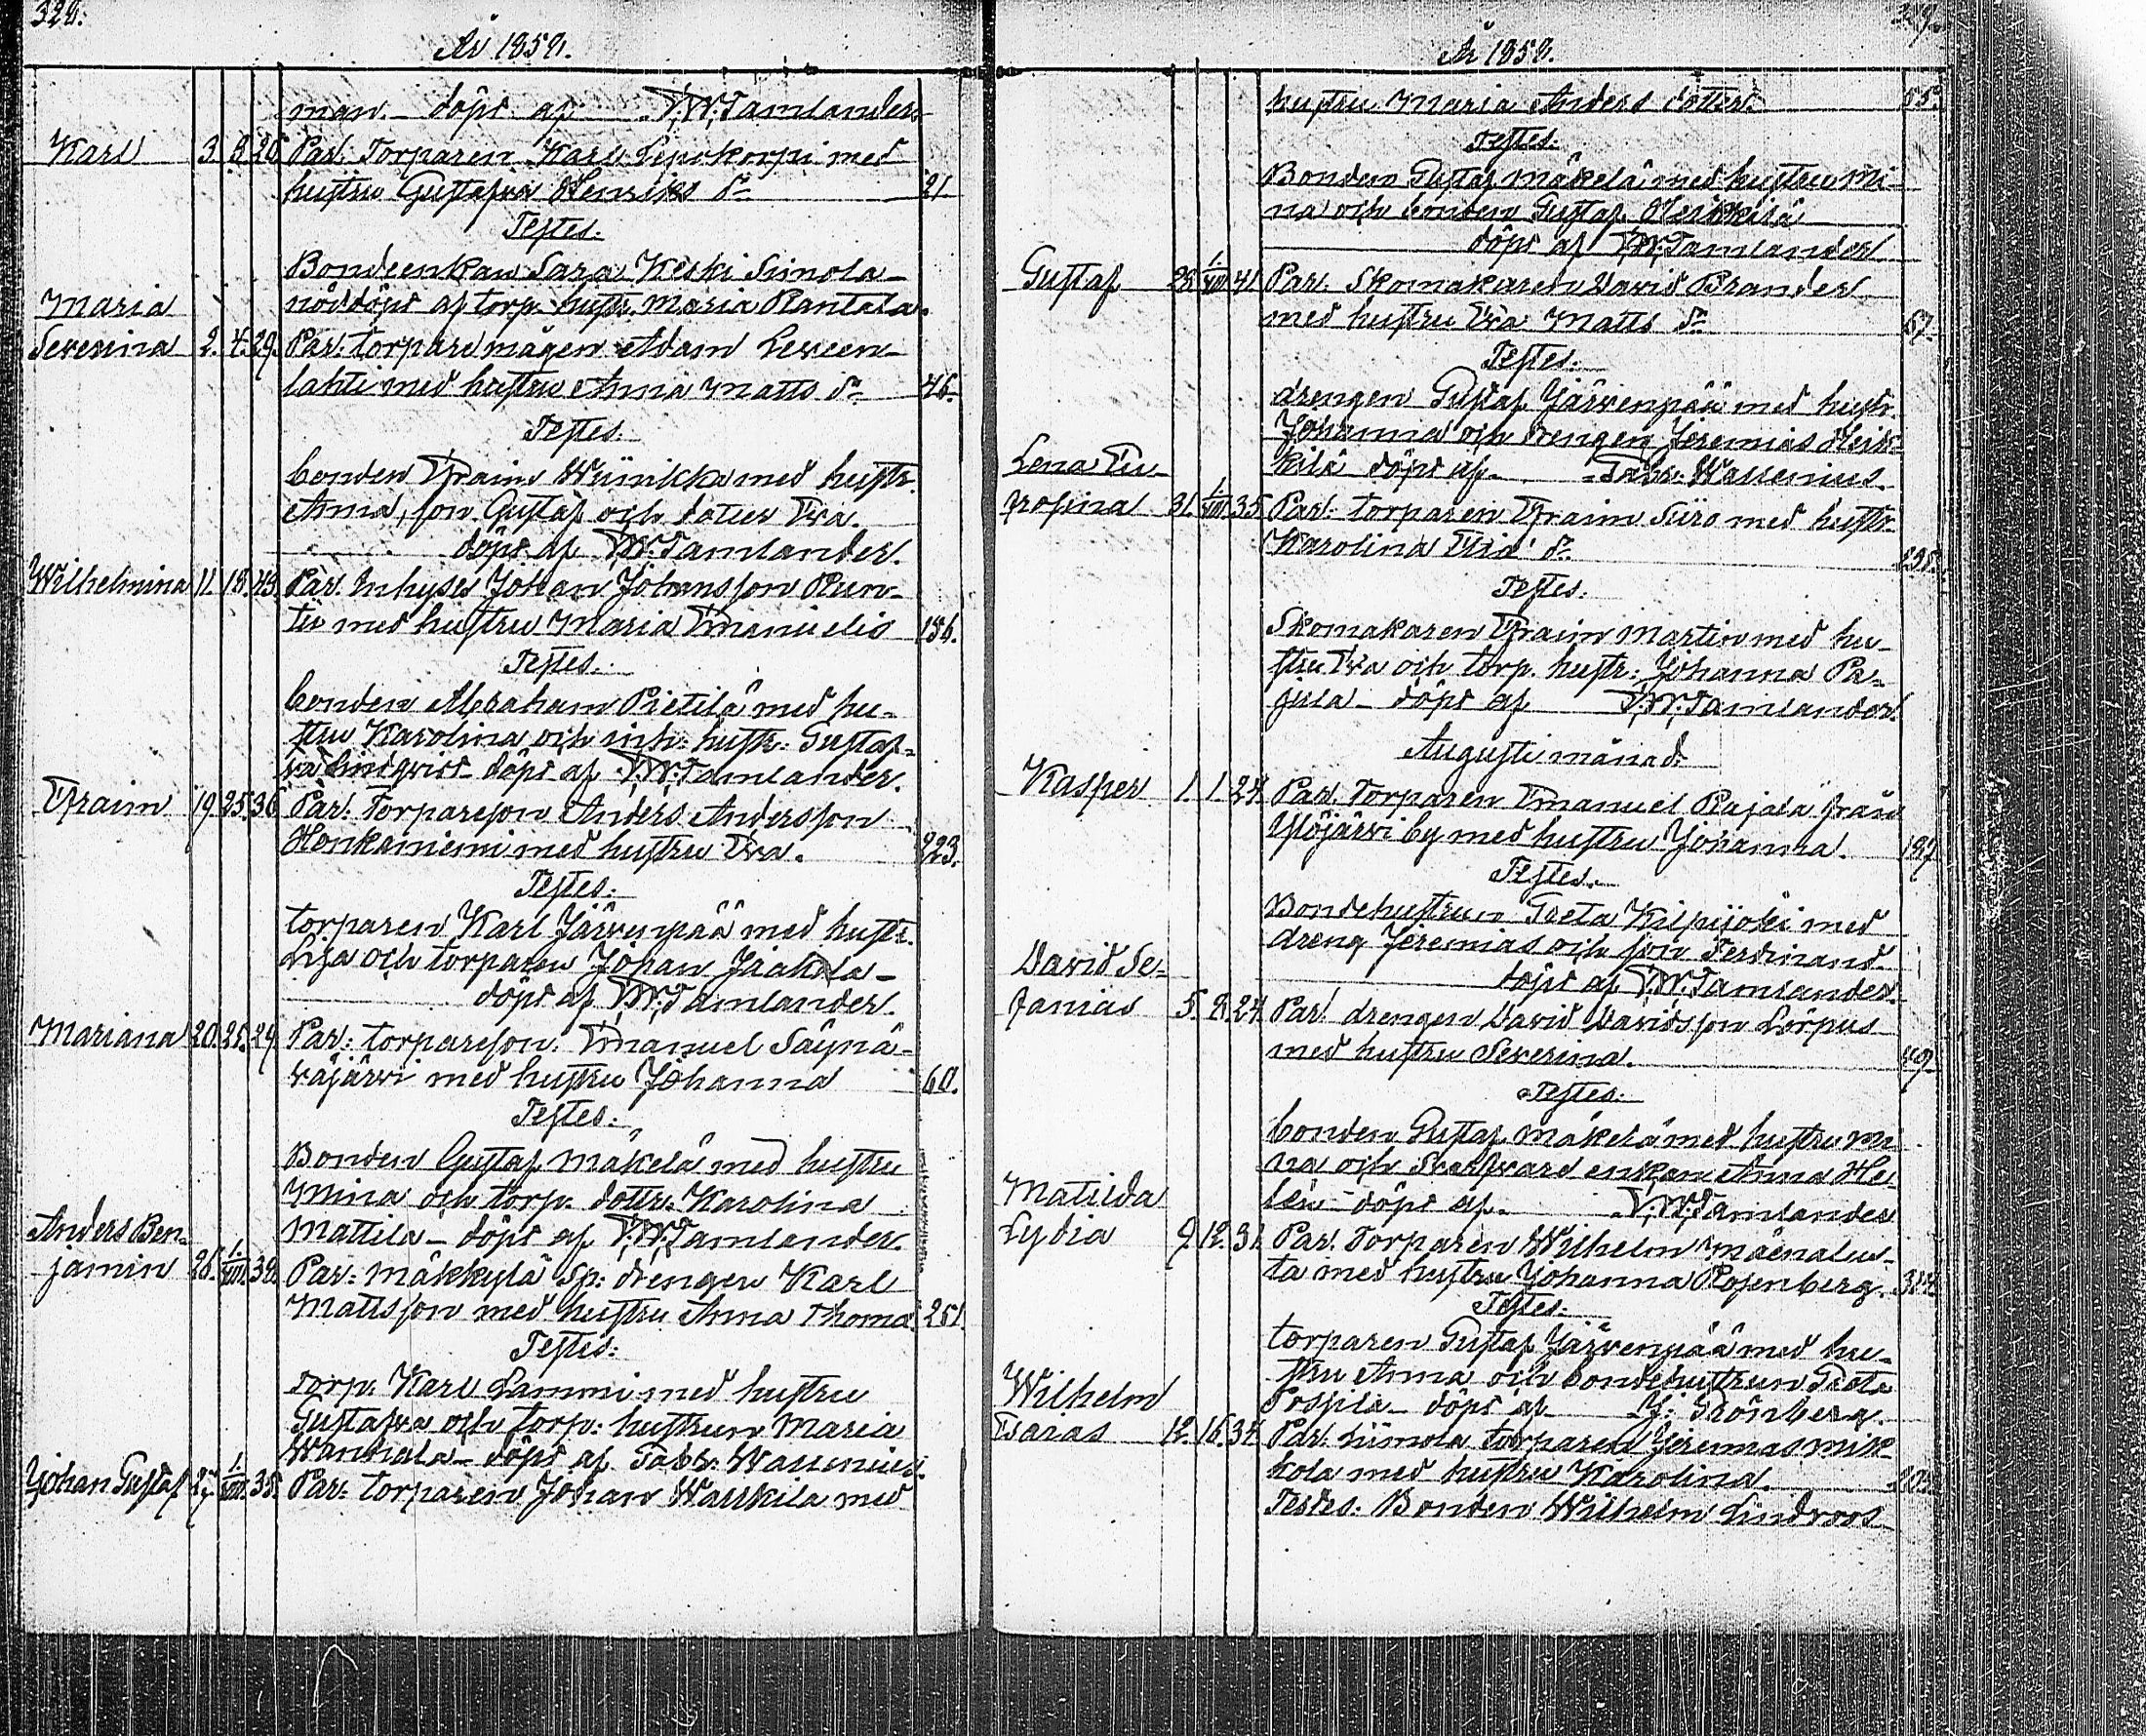 328.
År 1858.
man. döpt af F.W. Tamlander
Karl 3. 8. 26. Par. Torparen Karl Lepokorpi med
hustru Gustafva Henriks dr. 21.
Testes.
Bondeenkan Sara Keski Simola
nöddöpt af torp. hustr. Maria Rantala.
Maria
Severina 2. 4. 29. Par: torpare mågen Adam Leveen-
lahti med hustru Anna Matts dr. 46.
Testes.
bonden Efraim Wiinikka med hustr.
Anna, son Gustaf och dotter Eva.
döpt af F.W. Tamlander.
Wilhelmina 11. 18. 43. Par. Inhyses Johan Johansson Run-
tu med hustru Maria Emanuelis 186.
Testes.
bonden Abraham Pietilä med hu-
stru Karolina och inh. hustr. Gustaf-
va Lindqvist döpt af F.W. Tamlander.
Efraim 19. 25. 36. Par. Torpareson Anders Andersson
Honkaniemi med hustru Eva. 223.
Testes:
torparen Karl Järvenpää med hustr.
Lisa och torparen Johan Jaakola
döpt af F.W. Tamlander.
Mariana 20. 25. 29. Par: torpareson: Emanuel Säynä-
väjärvi med hustru Johanna 60.
Testes:
Bonden Gustaf Mäkelä med hustru
Mina och torp. dottr. Karolina
Mattila döpt af F.W. Tamlander.
Anders Ben-
jamin 26. 1/VIII. 32. Par: Mäkkylä Sp: drengen Karl
Mattsson med hustru Anna Thoma. 251.
Testes:
torp. Karl Lammi med hustru
Gustafva och torp: hustrun Maria
Wannala döpt af Fabr. Wallenius.
Johan Gustaf 27. 1/VIII. 35. Par: torparen Johan Warkila med
År 1858.
hustru Maria Anders dotter. 55.
Testes:
Bonden Gustaf Mäkelä med hustru Mi-
na och bonden Gustaf Heikkilä
döpt af F.W. Tamlander
Gustaf 28. 1/VIII. 41. Par. Skomakaren David Brander
med hustru Eva Matts dr. 67.
Testes:
drengen Gustaf Järvenpää med hustr.
Johanna och drengen Jeremias Heik-
kilä döpt af Fabr. Wallenius.
Lena Eu-
frosina 31. 1/VIII. 35. Par: torparen Efraim Siiro med hustr.
Karolina dr. 238.
Testes.
Skomakaren Efraim Martin med hu-
stru Eva och torp. hustr: Johanna Pa-
jula döpt af F.W. Tamlander.
Augusti månad.
Kasper 1. 1. 24. Par. Torparen Emanuel Rajala från
Ylöjärvi by med hustru Johanna. 197.
Testes.
Bondehustrun Greta Kilpijoki med
dreng Jeremias och son Ferdinand.
döpt af F.W. Tamlander.
David Se-
fanias 5. 8. 24. Par. drengen David Davidsson Lörpus
med hustru Severina. 49.
Testes:
bonden Gustaf Mäkelä med hustru Mi-
na och enkan Anna He-
len döpt af F.W. Tamlander
Matilda
Lydia 9. 12. 31. Par. Torparen Wilhelm Mäenalus-
ta med hustru Johanna Rosenberg. 314.
Testes.
torparen Gustaf Järvenpää med hu-
stru Anna och bondehustrun Greta
Possila döpt af J. Grönberg.
Wilhelm
Esaias 12. 16. 34. Par. Liimola torparen Jeremias Mik-
kola med hustru Karolina.
Testes: Bonden Wilhelm Lindroos